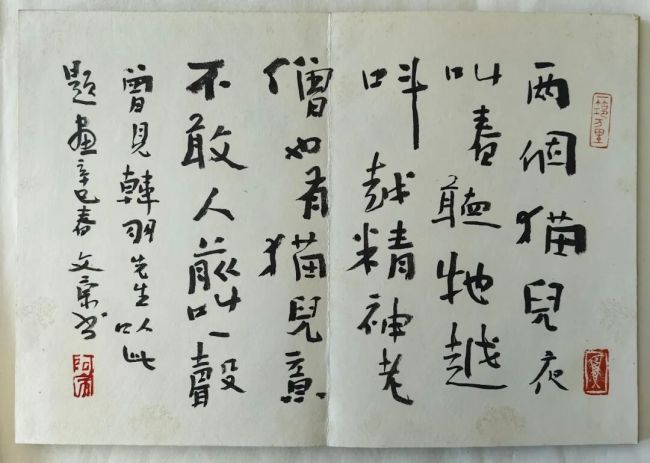 两個猫兒夜
叫春聽牠越
呌越精神老
僧也有猫兒意
不敢人前叫一聲
曾見韓羽先生以此
題畫辛巳春 文